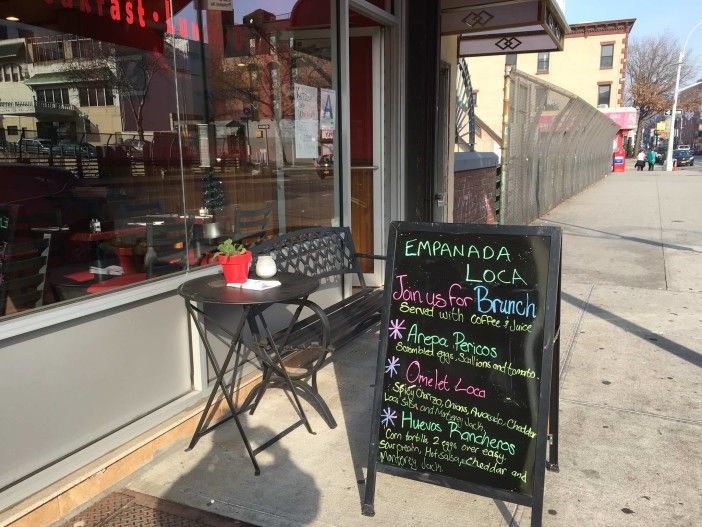 Breakfast · Lun
A
EMPANADA
LOCA
Join us for Brunch
Served with coffee & Juice
Arepa Pericos
Scrambled eggs, Scallions and tomato.
Omelet Loca
Spicy Chorizo, Onions, Avocado, Cheddar
Loca Salsa and Monterey Jack
Huevos Rancheros
Corn tortilla, 2 eggs over easy.
Sour cream, Hot Salsa, Cheddar and
Monterey Jack